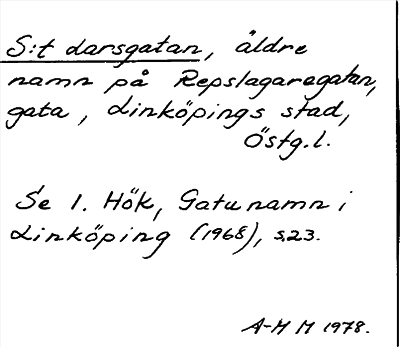 S:t darsgatan, äldre
namn på Repslagaregatan,
gata, Linköpings stad,
Östg.l.
Se I. Hök, Gatunamn i
Linköping (1968), s.23.
A-M M 1978.